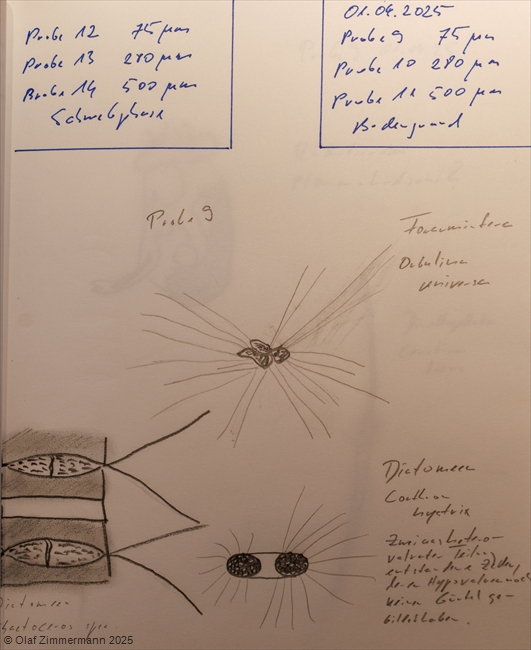 Probe 12 75 µm
Probe 13 280 µm
Probe 14 500 µm
Schwebphase
01.04.2025
Probe 9 75 µm
Probe 10 280 µm
Probe 11 500 µm
Bodengrund
Probe 9
Foraminifera
Orbulina
universa
Diatomeen
Corethron
hystrix
Zwei aus hetero-
valvater Teilung
entstandene Zellen,
deren Hypovalven noch
keine Gürtel ge-
bildet haben.
Diatomeen
Chaetoceros spec.
© Olaf Zimmermann 2025